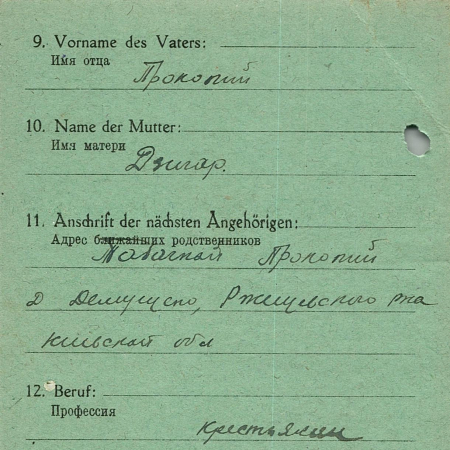 9. Vorname des Vaters:
Имя отца
Прокопий
10. Name der Mutter:
Имя матери
Дзигар.
11. Anschrift der nächsten Angehörigen:
Адрес ближайших родственников
Прокопий
Д Ржищевского р-на
Киевской обл
12. Beruf:
Профессия
крестьянин